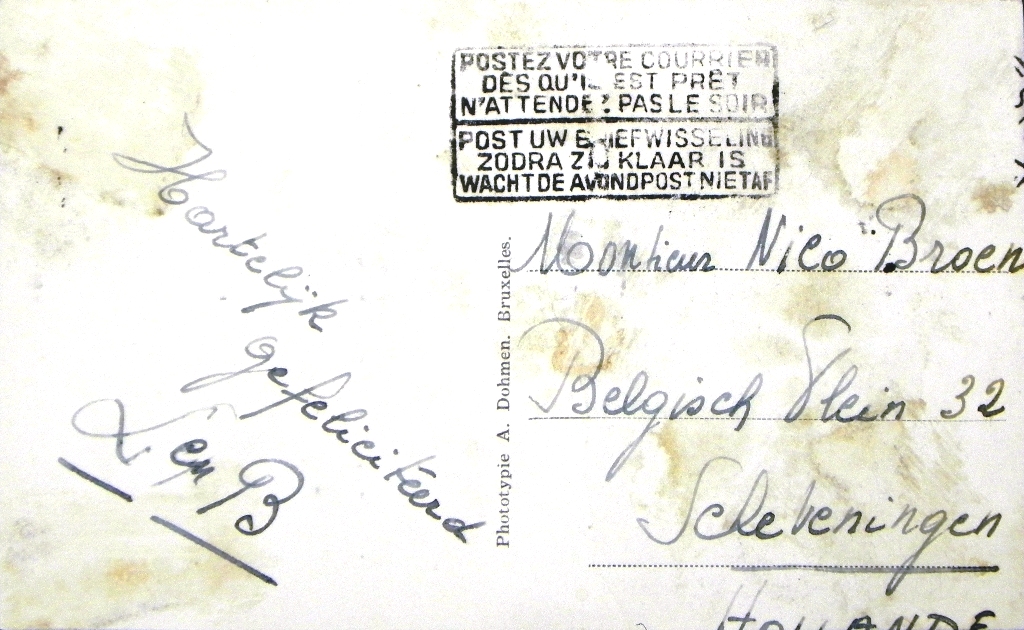 POSTEZ VOTRE COURRIER
DÈS QU'IL EST PRÊT
N'ATTENDEZ PAS LE SOIR
POST UW BRIEFWISSELING
ZODRA ZIJ KLAAR IS
WACHT DE AVONDPOST NIET AF
Hartelijk
gefeliciteerd
en B
Phototypie A. Dohmen. Bruxelles.
Monsieur Nico Broen
Belgisch Plein 32
Scheveningen
HOLLANDE